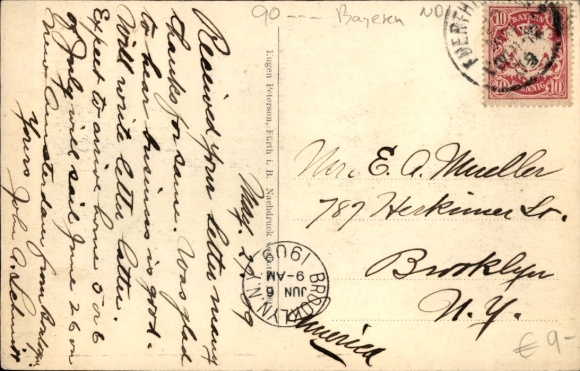 90 --- Bayern ND
FUERTH
BAYERN
10 10
PFENNIG
Eugen Peterson, Fürth i. B. Nachdruck
May 27/09
Received your letter many
thanks for same. Was glad
to hear business is good.
Will write letter later.
Expect to arrive home 5 or 6
of July will sail June 26 on
Amsterdam from
Yours Joh. A. Schmitt
Mr. E. A. Mueller
787 Herkimer St.
Brooklyn
N.Y.
America
BROOKLYN, N.Y.
JUN 6
9-AM
1909
€ 9-